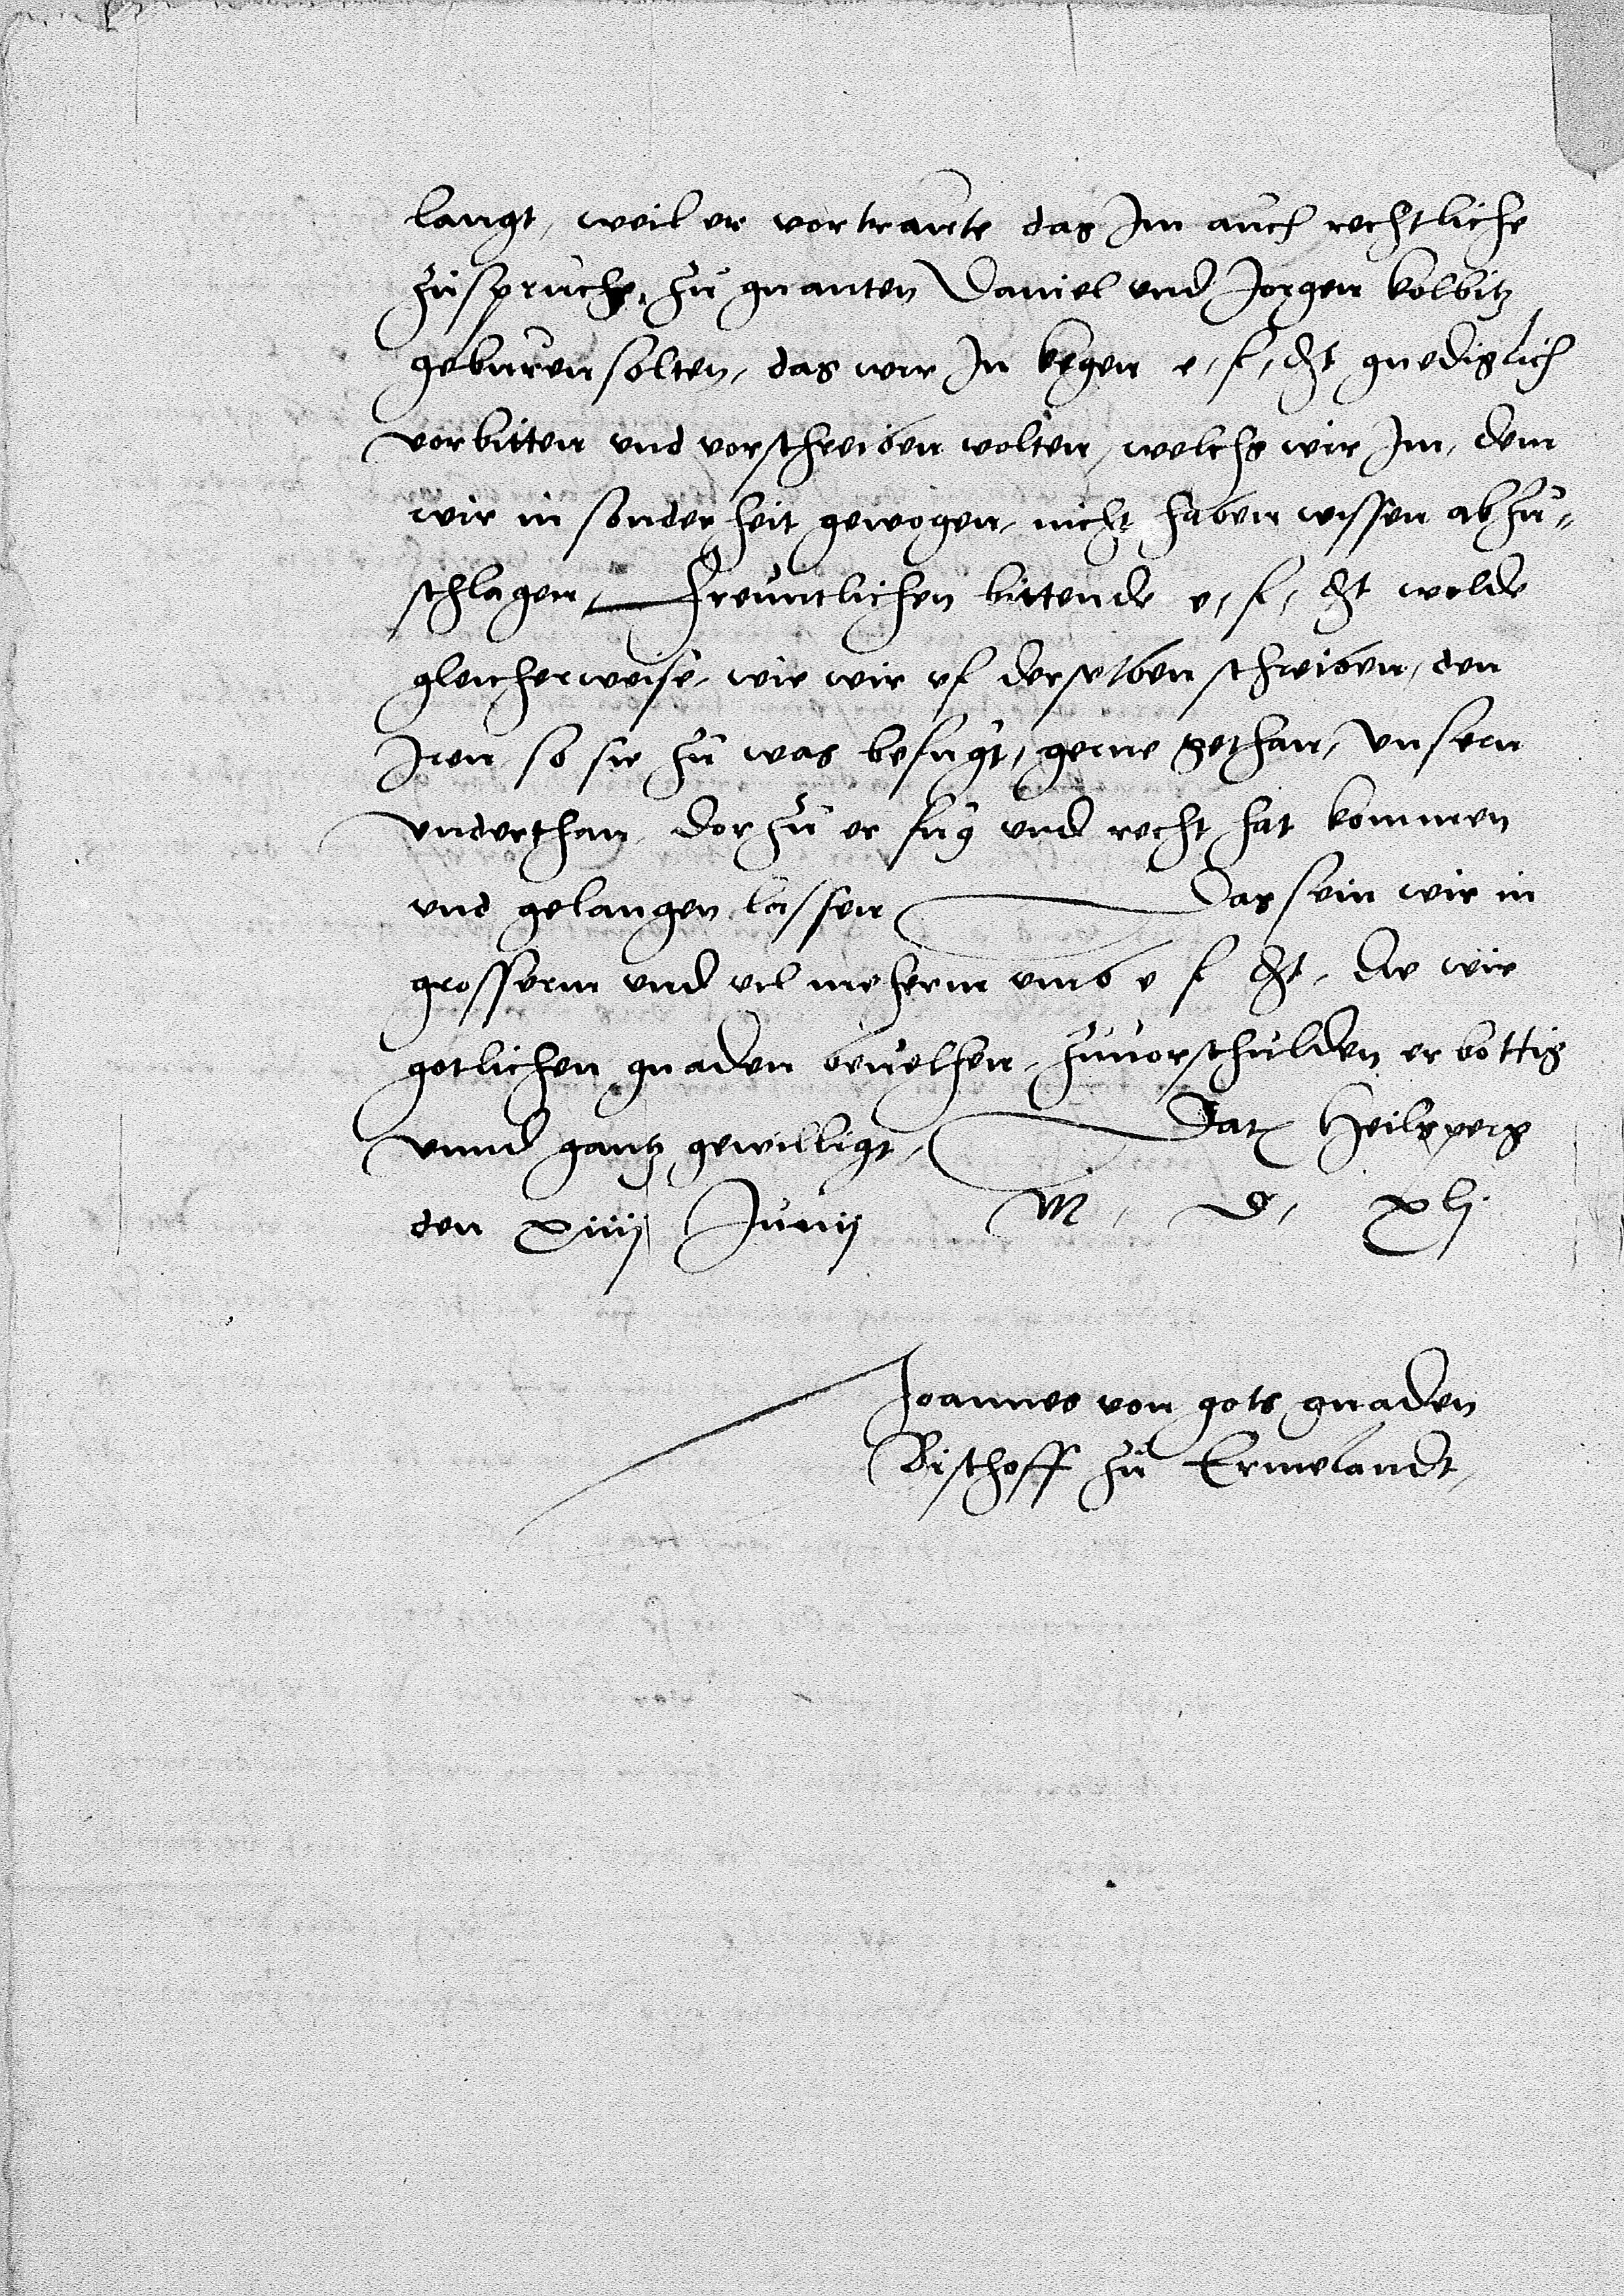 langt, weil er vortraute das Im auch rechtliche
zuspruche, zu gnanten Daniel und Jorgen kolbitz
geburen solten, das wir In kegen e, f, dt gnediglich
vorbitten und vorschreiben wolten, welchs wir Im, dem
wir in sonderheit gewogen, nicht haben wissen abzu-
schlagen, Freuntlichen bittende e, f, dt wolde
gleicherweise, wie wir uf derselben schreiben, den
Iren so sie zu was befugt, gerne gethan, unsern
underthan, dorzu er fug und recht hat kommen
und gelangen lassen Das sein wir in
grosserm und vil meherm umb e f dt, die wir
gotlichen gnaden beuelhen, zuuorschulden erbottig
unnd gantz gewilligt, Dat Heilsperg
den xiiij Junij M, D, xlj
Joannes von gots gnaden
Bischoff zu Ermelandt,